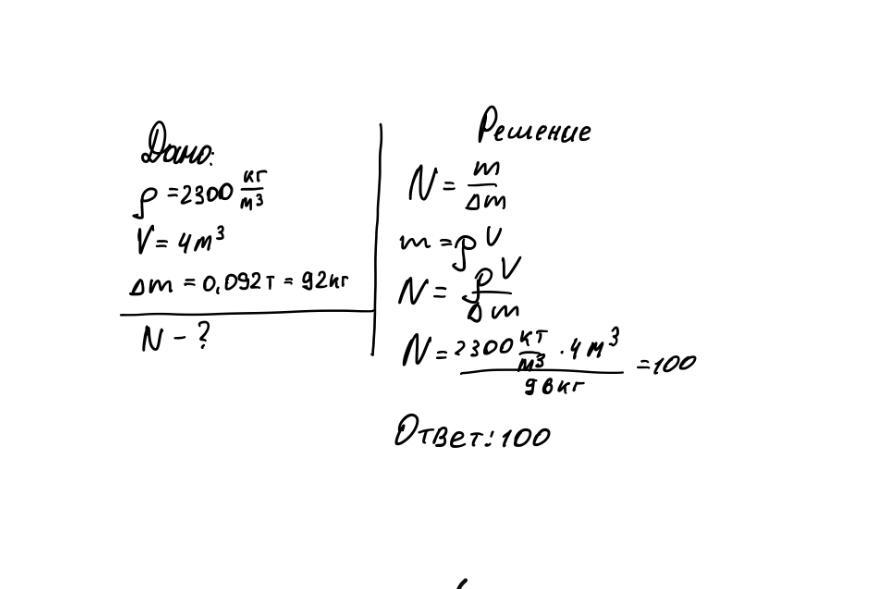 Дано:
ρ = 2300 кг/м³
V = 4 м³
Δm = 0,092 т = 92 кг
N - ?
Решение
N = m/Δm
m = ρV
N = ρV/Δm
N = 2300 кт/м³ · 4 м³ / 98 кг = 100
Ответ: 100